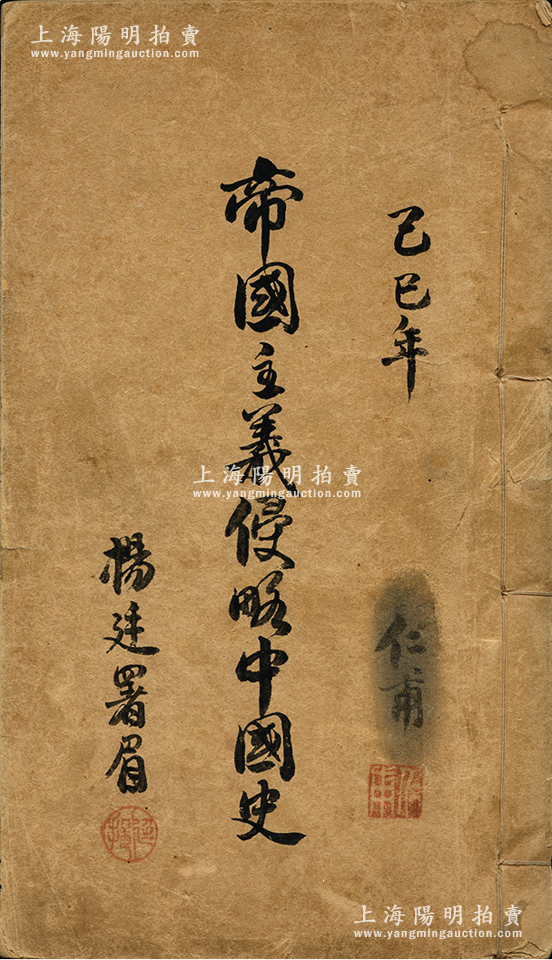 上海陽明拍賣
www.yangmingauction.com
己巳年
帝國主義侵略中國史
上海陽明拍賣
www.yangmingauction.com
仁甫
楊廷署眉
上海陽明拍賣
www.yangmingauction.com